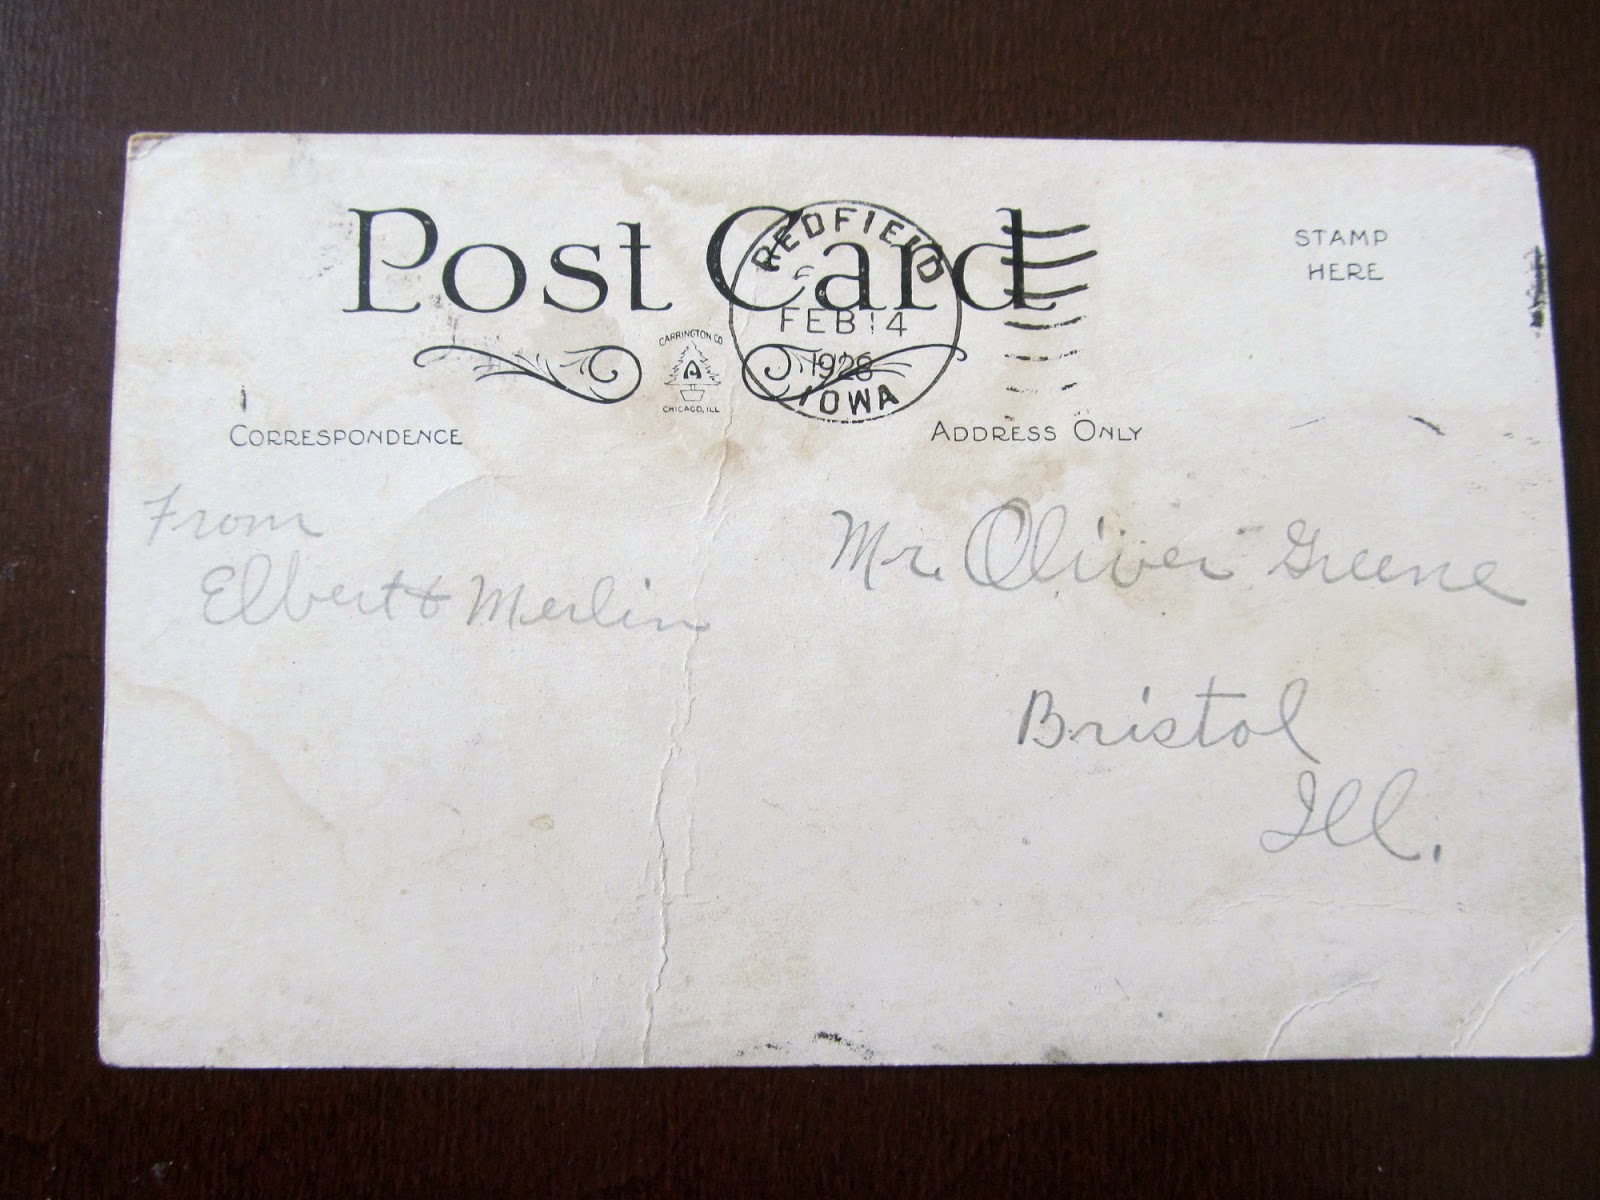 Post Card
REDFIELD
FEB 14
1928
IOWA
STAMP
HERE
CARRINGTON CO
A
CHICAGO, ILL
CORRESPONDENCE
ADDRESS ONLY
From
Elbert & Merlin
Mr. Oliver Greene
Bristol
Ill.